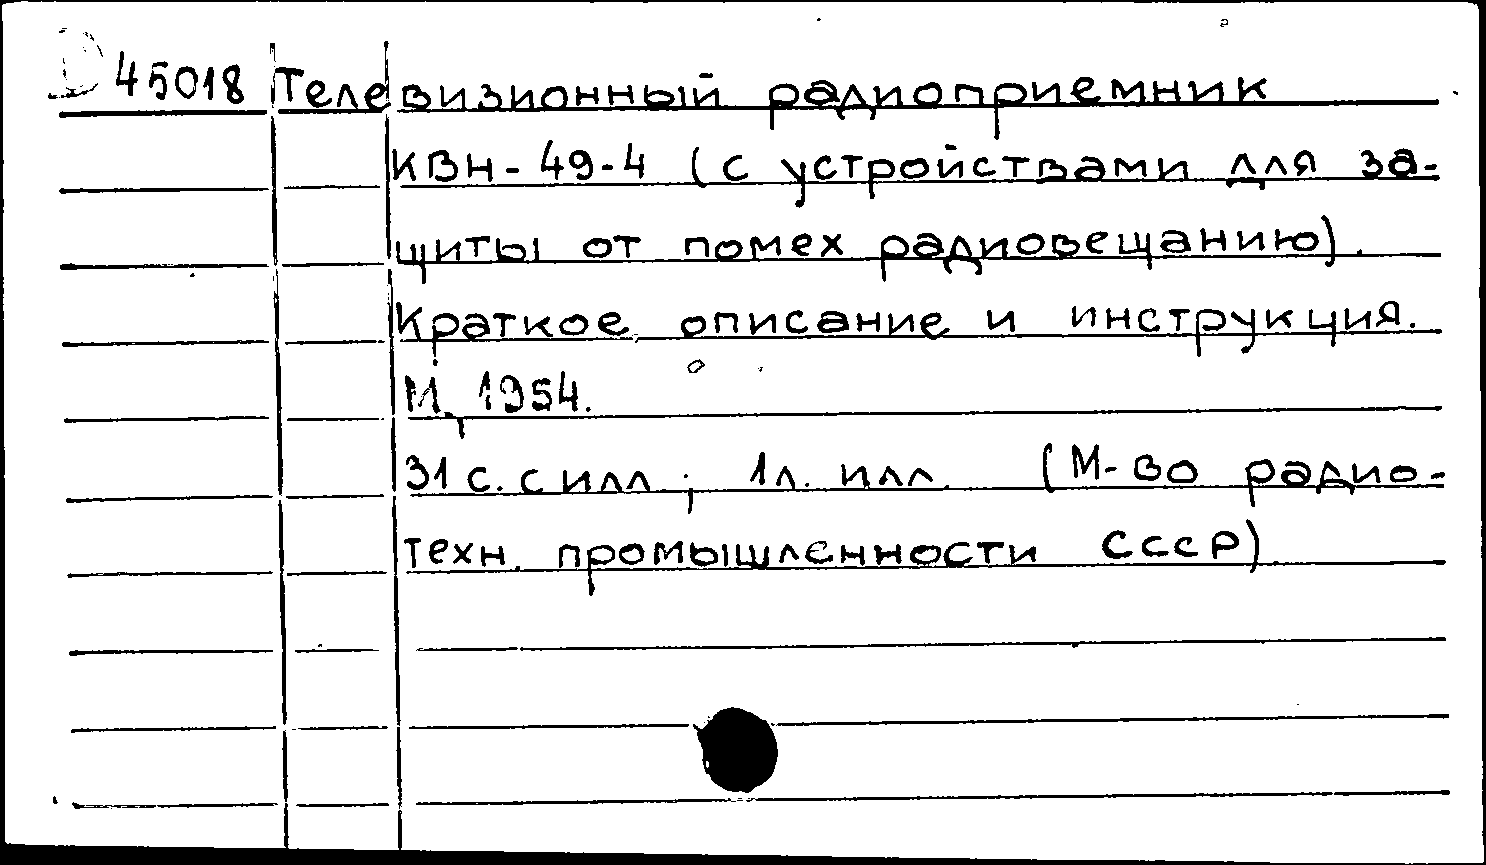 45018 Телевизионный радиоприемник
КВН-49-4 (с устройствами для за-
щиты от помех радиовещанию).
Краткое описание и инструкция.
М, 1954.
31 с. с илл.; 1л. илл. (М-во радио-
техн. промышленности СССР)